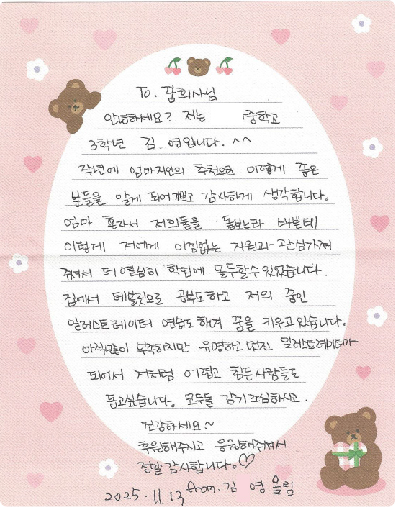 To. 관계자님
안녕하세요? 저는 중학교
3학년 김 영입니다. ^^
작년에 엄마지인의 추천으로 이렇게 좋은
분들을 알게 되어 기쁘고 감사하게 생각합니다.
엄마 혼자서 저희들을 돌보는라 바쁠텐데
이렇게 저에게 아낌없는 지원과 관심가져
주셔서 더 열심히 학업에 몰두할 수 있었습니다.
집에서 태블릿으로 공부도 하고 저의 꿈인
일러스트레이터 연습도 해서 꿈을 키우고 있습니다.
아직 많이 부족하지만 유명하고 멋진 일러스트레이터가
되어서 저처럼 어렵고 힘든 사람들을
돕고싶습니다. 모두들 감기 조심하시고
건강하세요~
후원해주시고 응원해주셔서
정말 감사합니다.♡
2025.11.13 from. 김 영 올림